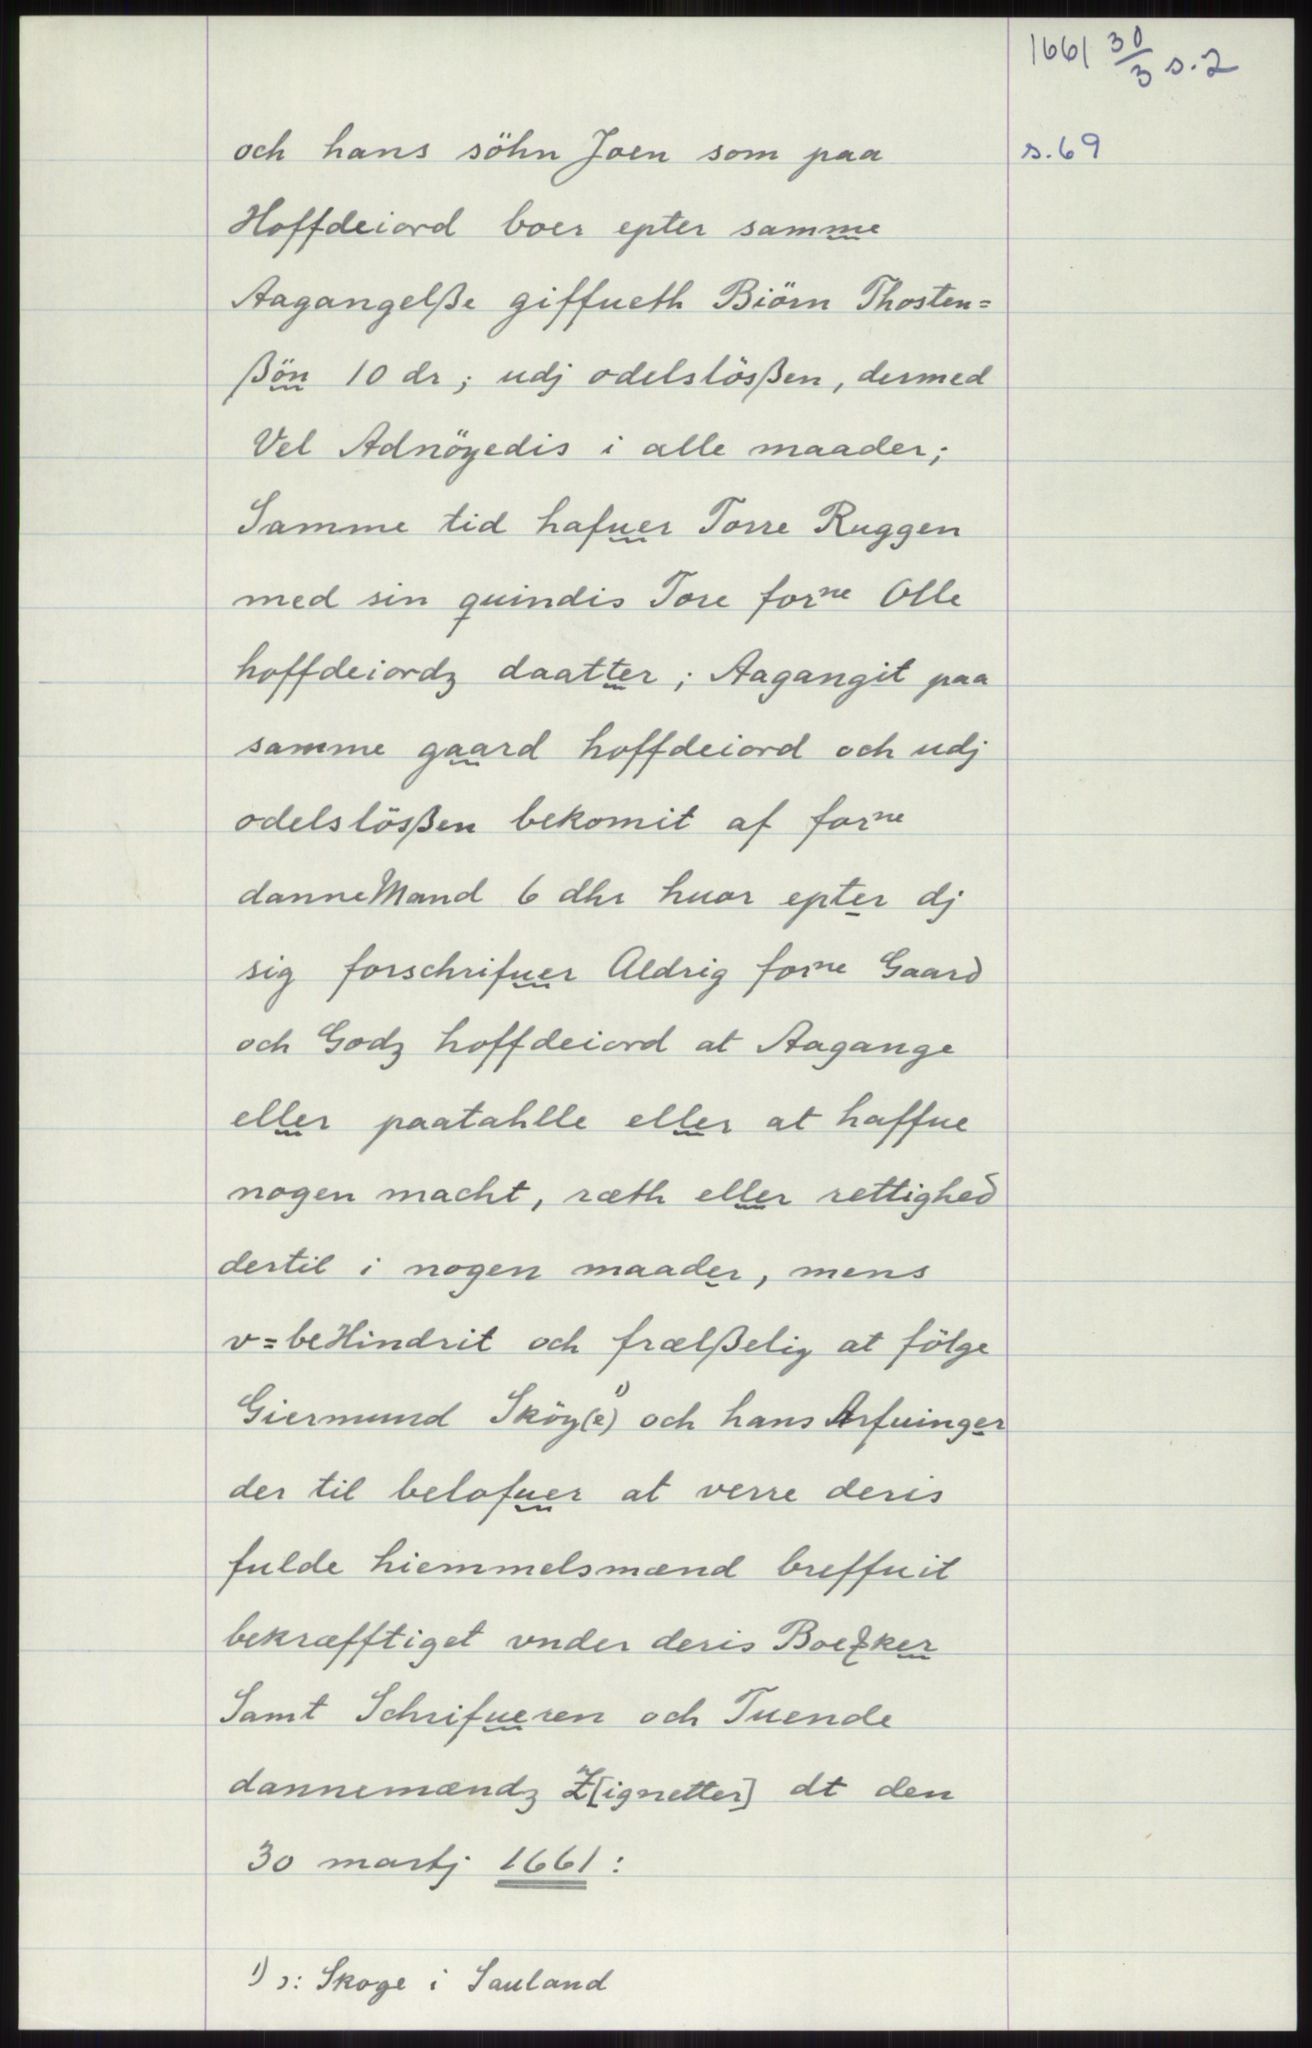 1661 30/3 s.2
och hans söhn Joen som paa
s.69
Hoffdeiord boer epter samme
Aagangelße giffueth Biörn Thosten=
ßön 10 dr ; udj odelslösßen, dermed
Vel Adnöyedis i alle maader;
Samme tid hafuer Torre Ruggen
med sin quindis Tore forne Olle
hoffdeiordz daatter ; Aagangit paa
samme gaard hoffdeiord och udj
odelslösßen bekomit af forne
danneMand 6 dhr huor epter dj
sig forschrifuer Aldrig forne Gaard
och Godz hoffdeiord at Aagange
eller paatahlle eller at haffue
nogen macht, ræth eller rettighed
dertil i nogen maader, mens
v=beHindrit och frælßelig at fölge
Giermund Sköy(e)1) och hans Arfuinger
der til belofuer at verre deris
fulde hiemmelsmænd breffuit
bekræfftiget vnder deris Boezker
Samt Schrifueren och Tuende
dannemændz Z[ignetter] dt den
30 martj 1661 :
1) ɔ: Skoge i Sauland